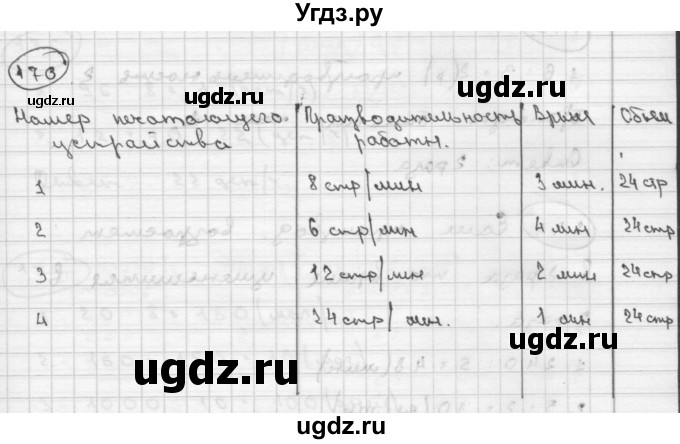 Угдз.ру
170
Номер печатающего устройства | Производительность работы. | Время | Объем
1 | 8 стр/мин | 3 мин. | 24 стр
2 | 6 стр/мин | 4 мин | 24 стр
3 | 12 стр/мин | 2 мин | 24 стр
4 | 24 стр/мин. | 1 мин | 24 стр
ugdz.ru
ugdz.ru
ugdz.ru
ugdz.ru
ugdz.ru
ugdz.ru
ugdz.ru
ugdz.ru
ugdz.ru
ugdz.ru
ugdz.ru